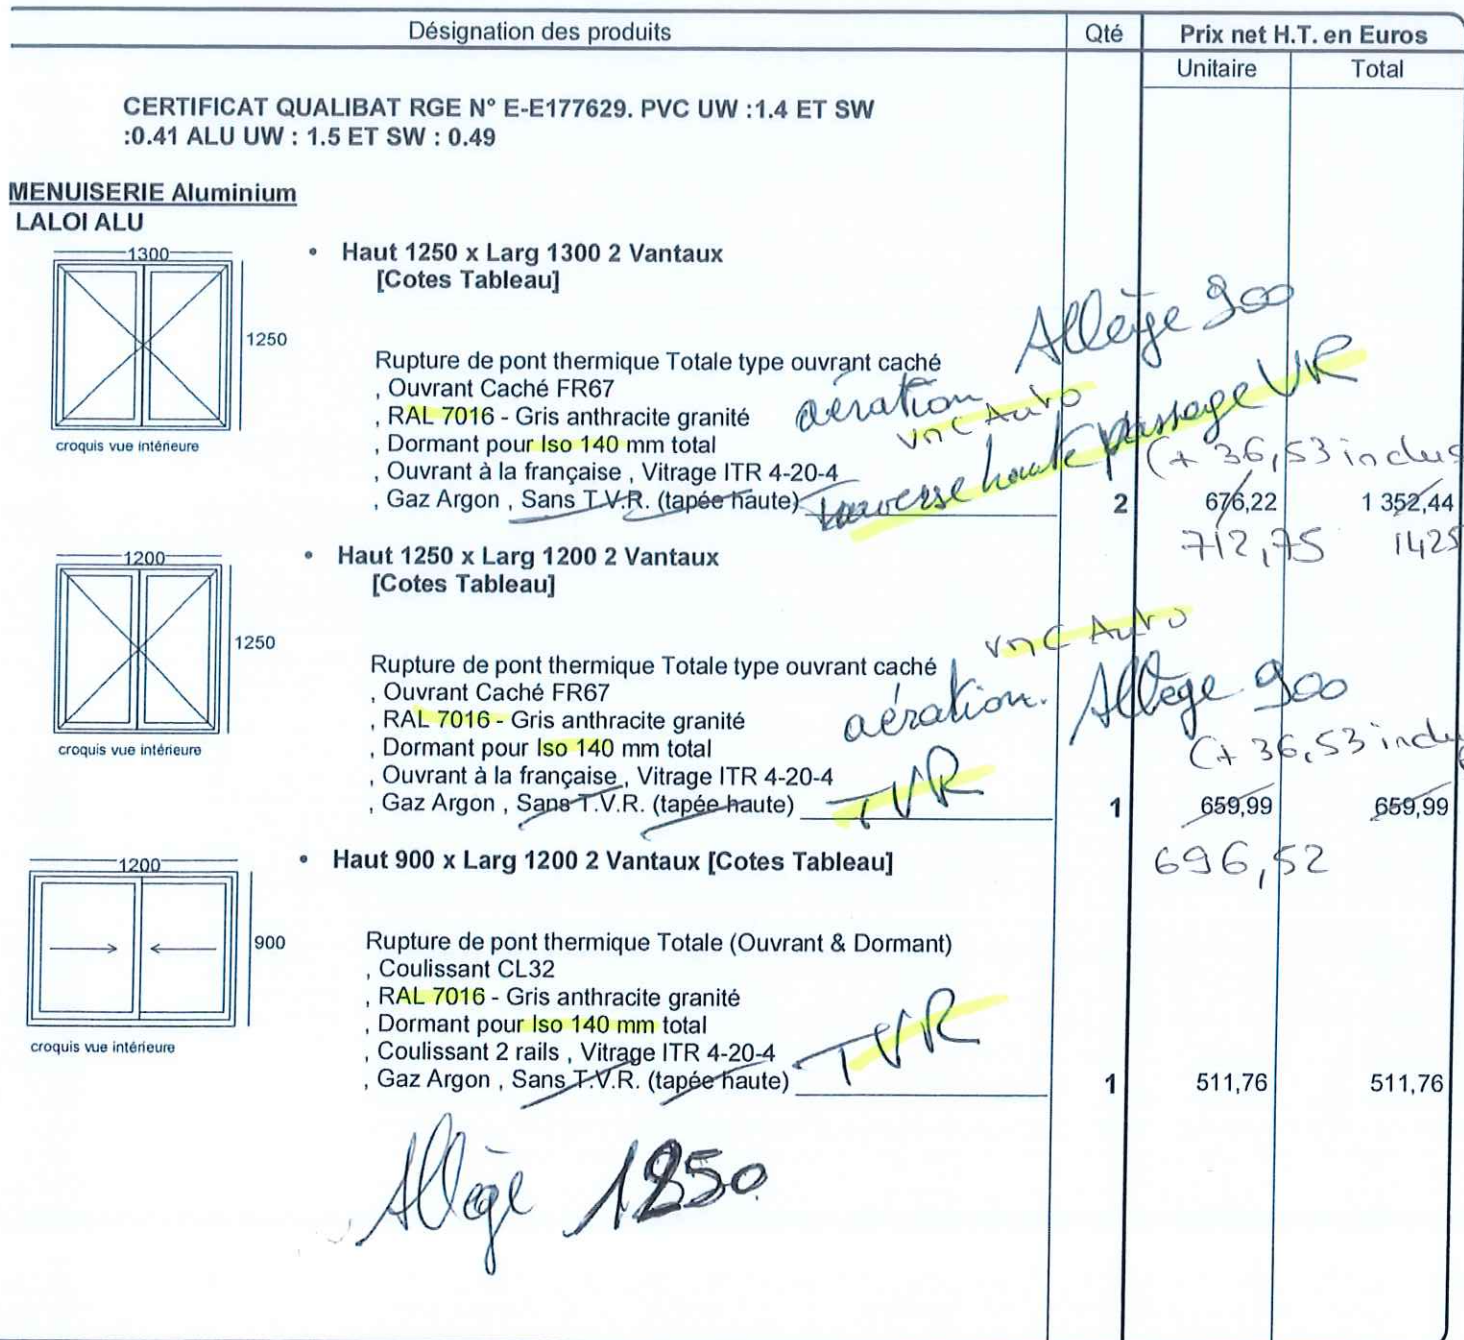 Désignation des produits Qté Prix net H.T. en Euros
Unitaire Total
CERTIFICAT QUALIBAT RGE N° E-E177629. PVC UW :1.4 ET SW
:0.41 ALU UW : 1.5 ET SW : 0.49
MENUISERIE Aluminium
LALOI ALU
1300
1250
croquis vue intérieure
• Haut 1250 x Larg 1300 2 Vantaux
[Cotes Tableau]
Allège 900
Rupture de pont thermique Totale type ouvrant caché
, Ouvrant Caché FR67
aération VMC Auto
, RAL 7016 - Gris anthracite granité
, Dormant pour Iso 140 mm total
, Ouvrant à la française , Vitrage ITR 4-20-4
(+ 36,53 inclus
, Gaz Argon , Sans T.V.R. (tapée haute) Traverse haute passage VR 2 676,22 1 352,44
712,75 1425
1200
1250
croquis vue intérieure
• Haut 1250 x Larg 1200 2 Vantaux
[Cotes Tableau]
VMC Auto
Rupture de pont thermique Totale type ouvrant caché
, Ouvrant Caché FR67
aération. Allège 900
, RAL 7016 - Gris anthracite granité
, Dormant pour Iso 140 mm total
(+ 36,53 inclu
, Ouvrant à la française , Vitrage ITR 4-20-4
, Gaz Argon , Sans T.V.R. (tapée haute) TVR 1 659,99 659,99
696,52
1200
900
croquis vue intérieure
• Haut 900 x Larg 1200 2 Vantaux [Cotes Tableau]
Rupture de pont thermique Totale (Ouvrant & Dormant)
, Coulissant CL32
, RAL 7016 - Gris anthracite granité
, Dormant pour Iso 140 mm total
, Coulissant 2 rails , Vitrage ITR 4-20-4
, Gaz Argon , Sans T.V.R. (tapée haute) TVR 1 511,76 511,76
Allège 1250